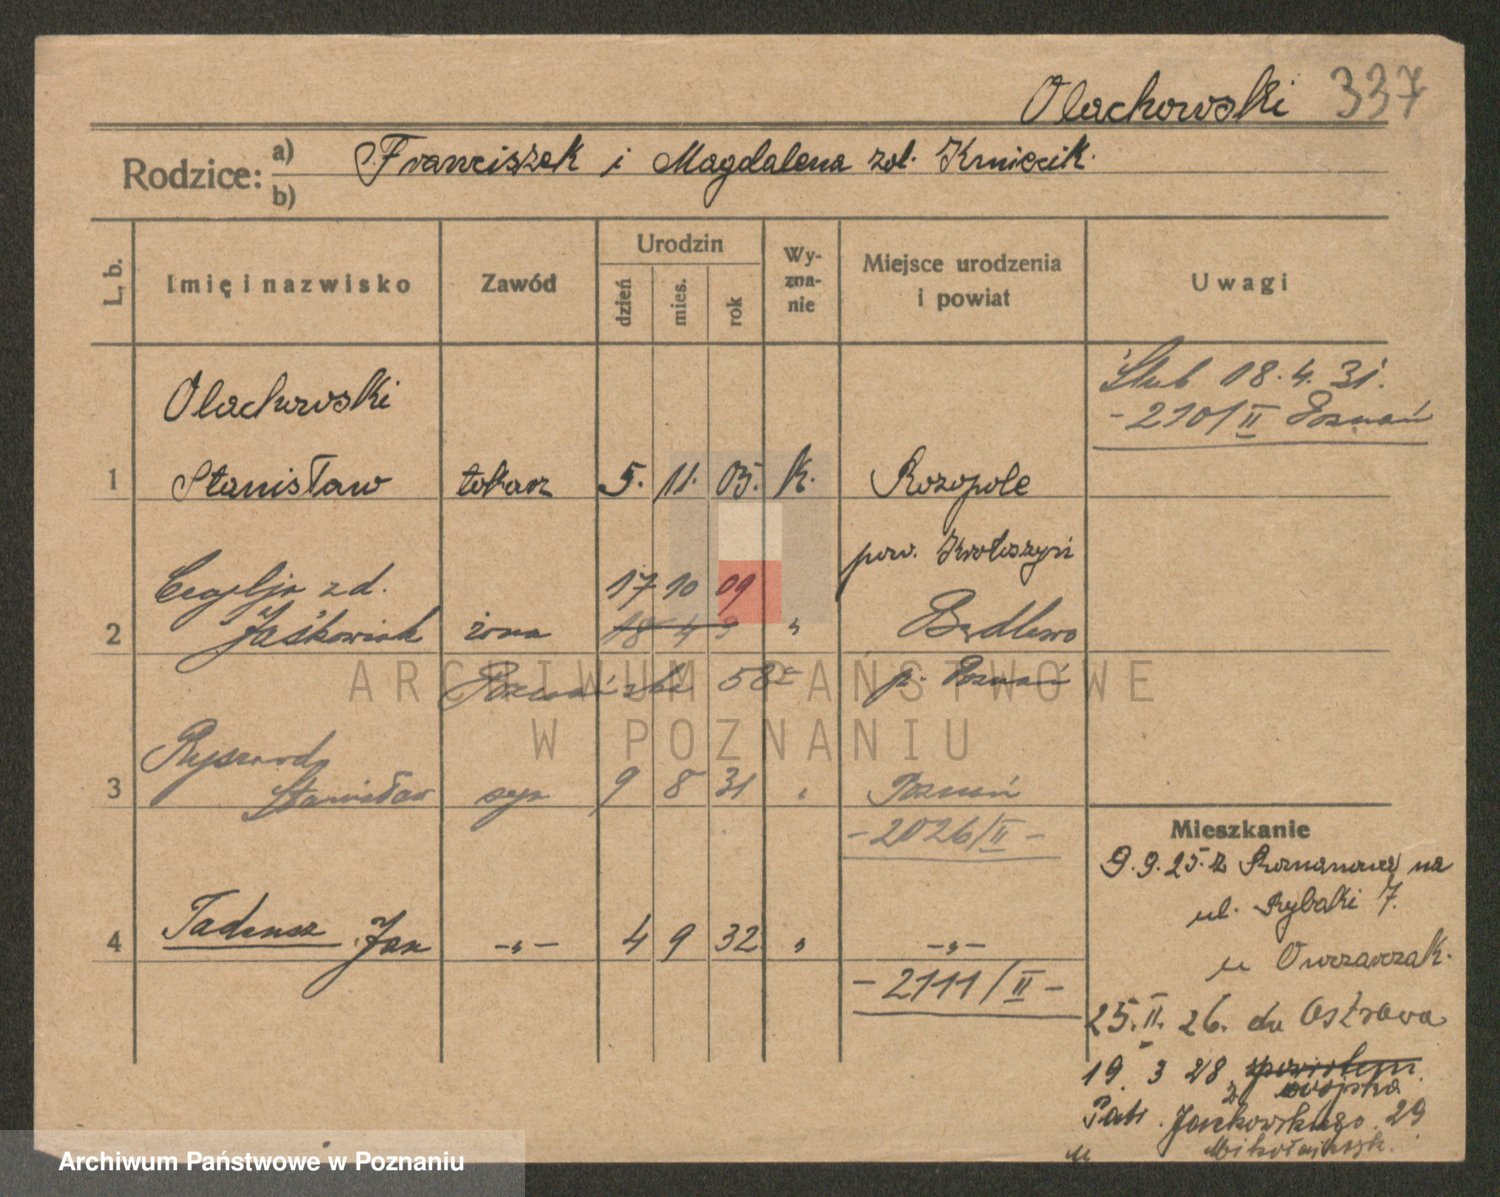 Olachowski 337
Rodzice: a) Franciszek i Magdalena zd. Kmiecik.
b)
L. b. Imię i nazwisko Zawód Urodzin dzień mies. rok Wy-zna-nie Miejsce urodzenia i powiat Uwagi
Ślub 18.4.31.
-210/II Poznań
Olachowski
1 Stanisław tokarz 5. 11. 05. K. Rozopole
pow. Krotoszyn
zd. 17 10 09
2 Jaśkowiak żona 18 4 9 " Będlewo
58 p. Poznań
Ryszard
3 Stanisław syn 9 8 31 " Poznań
-2026/II-
Mieszkanie
9.9.25. z na
ul. Rybaki 7.
4 Tadeusz Jan -„- 4 9 32 " -„-
u Owczarczak.
-2111/II-
25.II.26. do Ostrowa
19. 3 28
z wojska
Patr. Jackowskiego 29
u
ARCHIWUM PAŃSTWOWE
W POZNANIU
Archiwum Państwowe w Poznaniu